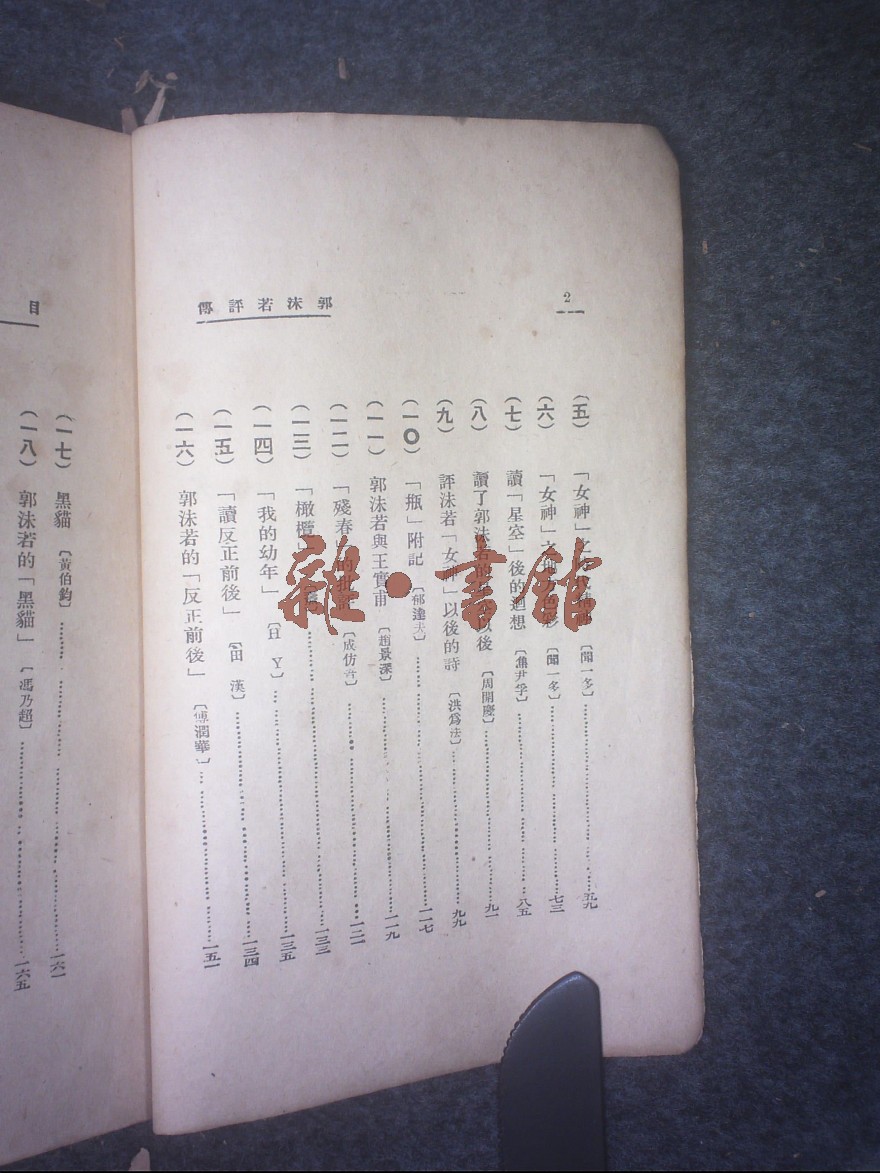 2
郭沫若評傳
(五)「女神」之時代精神〔聞一多〕……五九
(六)「女神」之地方色彩〔聞一多〕……七三
(七)讀「星空」後的迴想〔焦尹孚〕……八五
(八)讀了郭沫若的星空以後〔周開慶〕……九一
(九)評沫若「女神」以後的詩〔洪爲法〕……九九
(一〇)「瓶」附記〔郁達夫〕……一一七
(一一)郭沫若與王實甫〔趙景深〕……一一九
(一二)「殘春」的批評〔成仿吾〕……一二一
(一三)「橄欖」……一三三
(一四)「我的幼年」〔Y〕……一三五
(一五)「讀反正前後」〔田漢〕……一三四
(一六)郭沫若的「反正前後」〔傅潤華〕……一五一
目
(一七)黑貓〔黃伯鈞〕……一六一
(一八)郭沫若的「黑貓」〔馮乃超〕……一六五
雜·書館